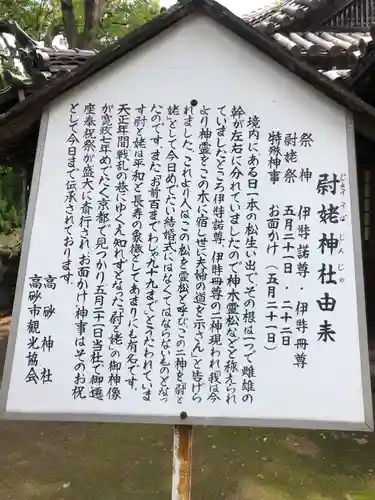 尉姥神社由来
じょうとうば じんじゃ
祭神 伊弉諾尊・伊弉冊尊
尉姥祭 五月二十一日・二十二日
特殊神事 お面かけ（五月二十一日）
境内にある日一本の松生い出でその根は一つで雌雄の
幹が左右に分れていましたので神木霊松などと称えられ
ていましたところ伊弉諾尊、伊弉冊尊の二神現われ我は今
より神霊をこの木に宿し世に夫婦の道を示さんと告げら
れました。これより人々はこの松を霊松と呼びこの二神を「尉と
姥」として今日めでたい結婚式にはなくてはならないものとなっ
たのです。またお前百までわしゃ九十九までとうたわれていま
す尉と姥は平和と長寿の象徴としてあまりにも有名です。
天正年間戦乱の巷にゆくえ知れずとなった「尉と姥」の御神像
が寛政七年めでたく京都で見つかり五月二十一日当社で御還
座奉祝祭が盛大に斎行され、お面かけ神事はそのお祝
として今日まで伝承されております。
高砂神社
高砂市観光協会